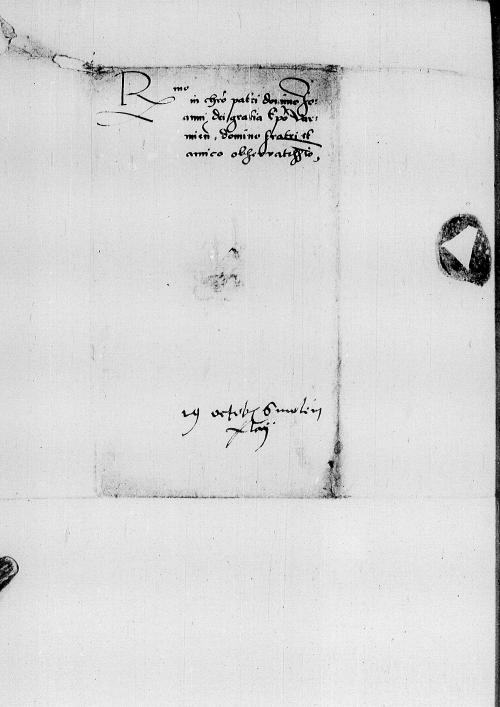 Rmo
in chro patri domino Jo:
anni dei gratia Epo Var:
mien, domino fratri et
amico obserratissio,
19 octob